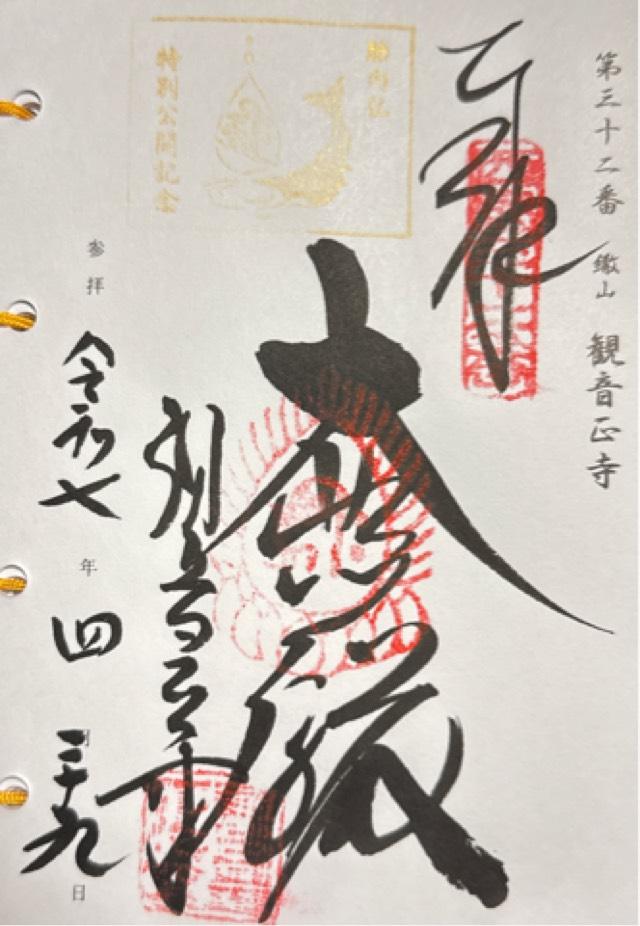 第三十二番 繖山 観音正寺
奉拝
大悲殿
観音正寺
胎内仏
特別公開記念
参拝 令和七年四月二十九日